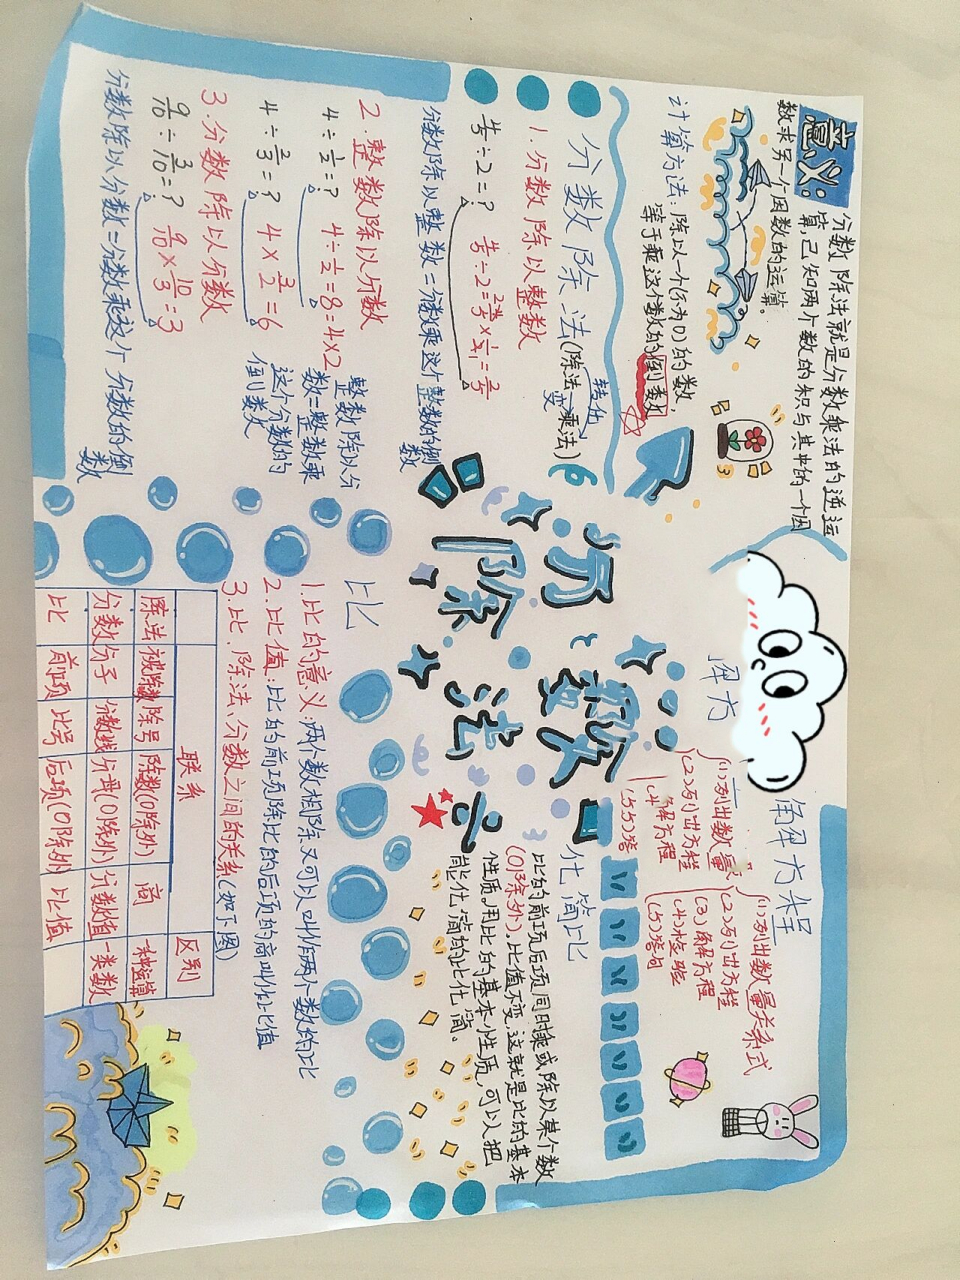 意义:
分数除法就是分数乘法的逆运
算,已知两个数的积与其中的一个因
数求另一个因数的运算。
计算方法:除以一个(不为0)的数,
等于乘这个数的倒数
分数除法(除法 转化 变 乘法)
1.分数除以整数
4/5÷2=? 4/5÷2=4/5×1/2=2/5
分数除以整数=分数乘这个整数的倒
数
2.整数除以分数
4÷1/2=? 4÷1/2=8=4×2
4÷2/3=? 4×3/2=6
整数除以分
数=整数乘
这个分数的
倒数
3.分数除以分数
9/10÷3/10=? 9/10×10/3=3
分数除以分数=分数乘这个分数的倒
数
分数
除法
解方
(1)列出数量
(2)列出方程
(4)解方程
(5)答
解方程
(1)列出数量关系式
(2)列出方程
(3)解方程
(4)检验
(5)答句
化简比
比的前项后项同时乘或除以某个数
(0除外),比值不变,这就是比的基本
性质,用比的基本性质,可以把
能化简的比化简。
比
1.比的意义:两个数相除又可以叫作两个数的比
2.比值:比的前项除比的后项的商叫作比值
3.比、除法、分数之间的关系(如下图)
联系 区别
除法 被除数 除号 除数(0除外) 商 一种运算
分数 分子 分数线 分母(0除外) 分数值 一类数
比 前项 比号 后项(0除外) 比值